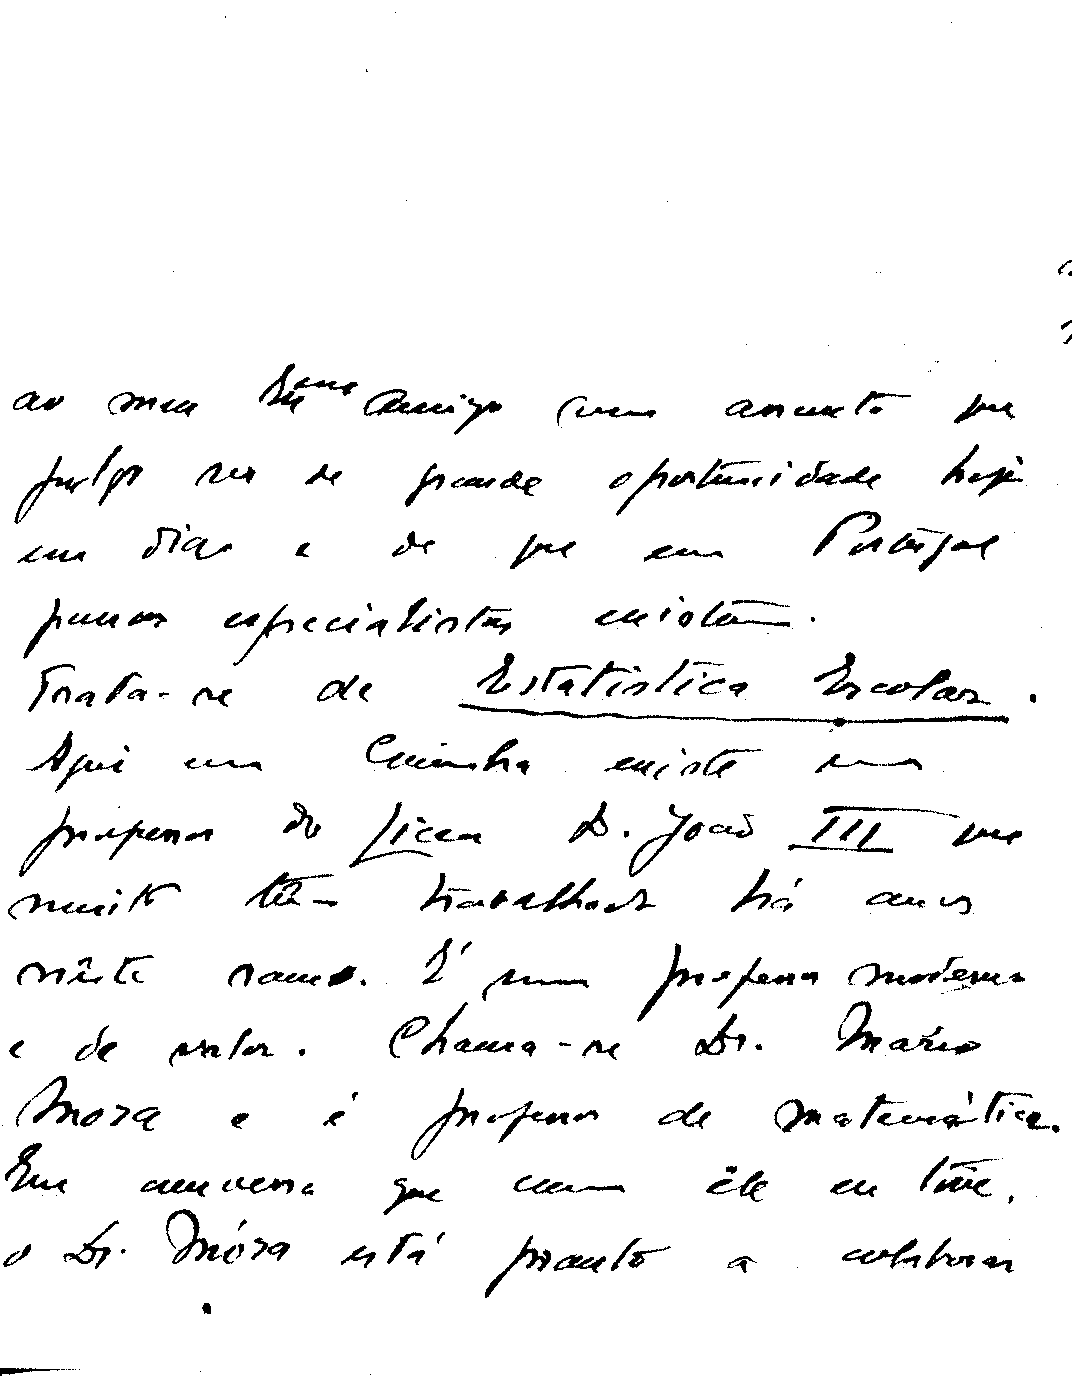 ao meu Exmo Amigo com assunto que
julgo ser de grande oportunidade hoje
em dias e de que em Portugal
poucos especialistas existam.
Trata-se de Estatistica Escolar.
Aqui em Coimbra existe um
professor do Liceu D. João III que
muito têm trabalhado há anos
nêste ramo. É um professor moderno
e de valor. Chama-se Dr. Mário
Mora e é professor de matemática.
Em conversa que com êle eu tive,
o Dr. Móra está pronto a colaborar